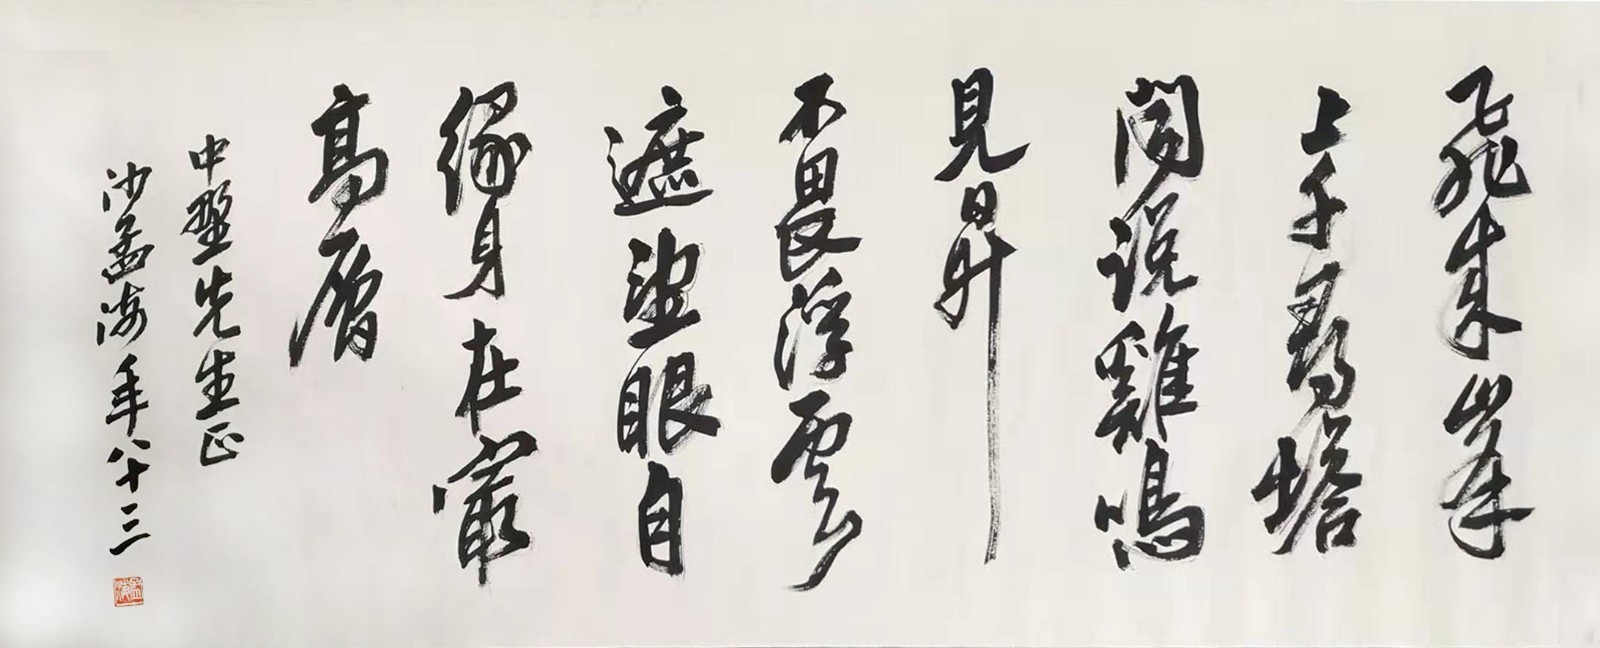 飛來峯
上千尋塔
聞說雞鳴
見日昇
不畏浮雲
遮望眼自
緣身在最
高層
中先生正
沙孟海年八十三